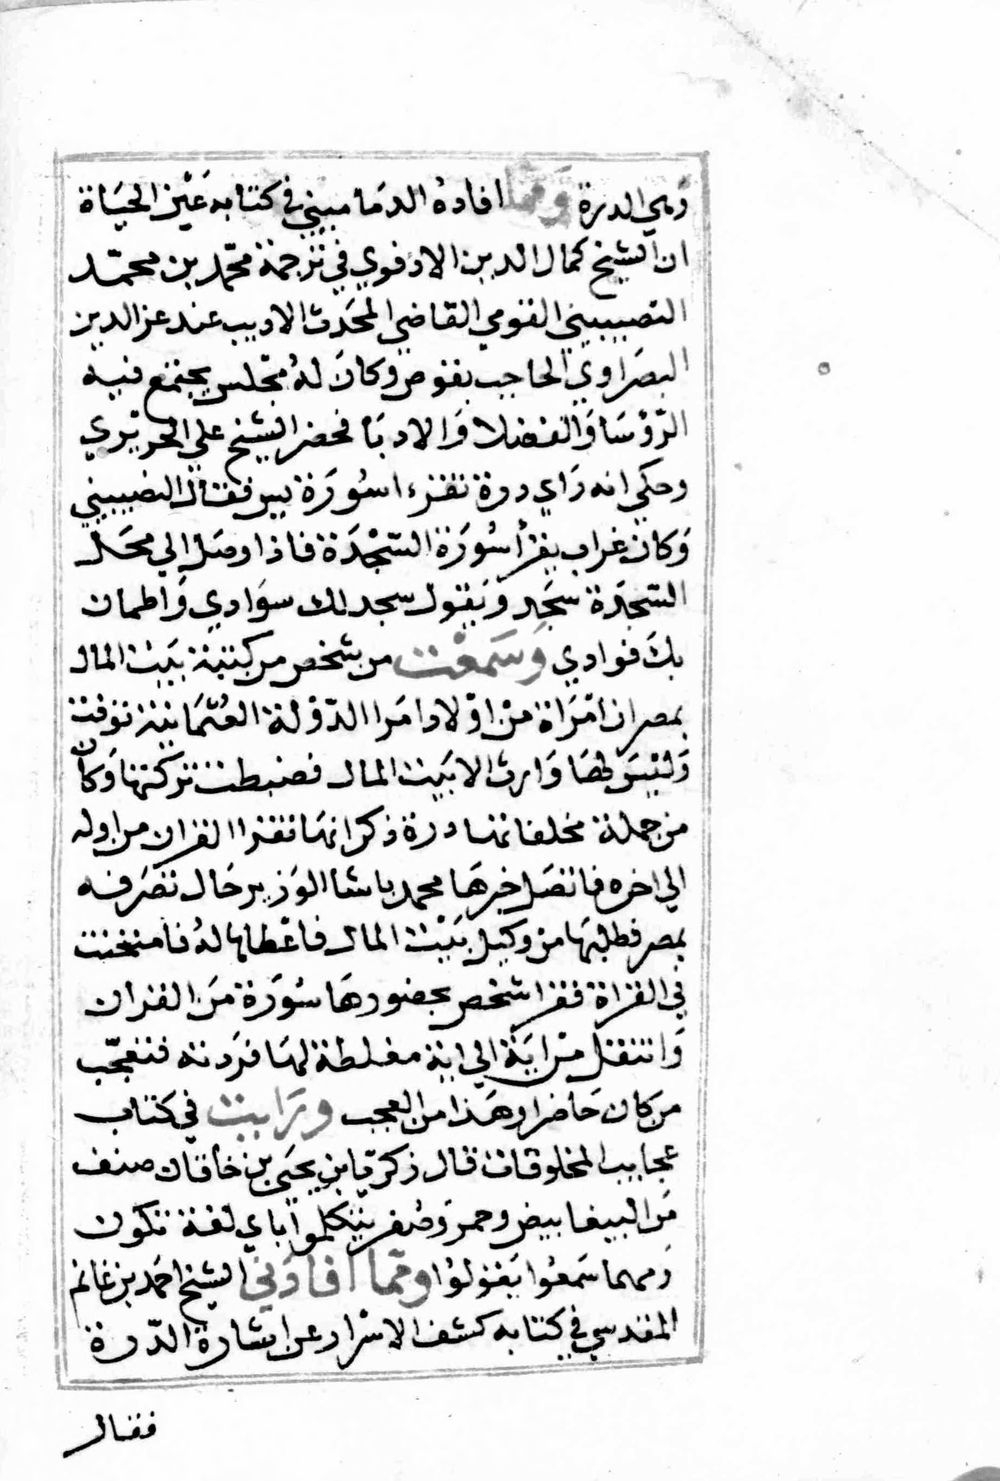 وهي الدرة ومما افاده الدماميني في كتابه عَيْن الحيَاة
ان الشيخ كمال الدين الادفوي في ترجمة محمّد بن محمّد
النصيبيني القومي القاضي المحَدث الاديب عند عز الدين
البصرَاوي الحاجب بقوص وكانَ لهُ مجْلس يجتمع فيه
الرّؤسَا وَالفضلا وَالادبَا فحضر الشيخ علي الحريري
وحكي انه رَاي درة تقرء اسُورَة يس فقال النصيبيني
وَكان غراب يقرأ سُورَة السّجْدَة فاذا وصَل الي محَل
السّجدَة سَجَد وَيقول سجد لك سوَادي وَاطمان
بكَ فوادي وَسَمعْت من شخص من كتبة بيَت المال
بمصر ان امْرَاة منْ اوْلاد امَرا الدّوْلة العُثمَانية توفت
وَليْسَ لهَا وَارث الا بيَت المال فضبطت تركتها وَكان
من جملة مخلفاتها درة ذكر انهَا تقرا القران من اوله
الي اخره فاتصَل خبرهَا محمد باشا الوَزير حَال تصَرفه
بمصر فطلبهَا من وكيل بيَت المال فاعْطاها لهُ فامتحنت
في القراة فقرا شخص بحضورهَا سُورَة منَ القران
وَانتقل منْ ايَة الي اية مغلطة لهَا فرَدته فتعجّب
من كان حَاضرا وهَذا من العجب ورَايت في كتاب
عجايب المخلوقات قال زكريّا بن يحيَي بن خاقان صنف
منَ الببغا بيض وحمر وَصُفر يتكلموا باي لغة تكون
ومهما سَمعُوا يَقولوُا وممّا افادَني الشيخ احمَد بن غانم
المقدسي في كتابه كشف الاسْرار عن اشارة الدّرة
فقال